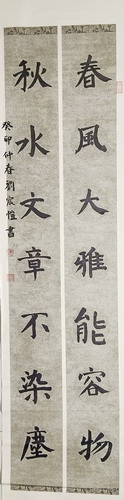 春風大雅能容物
秋水文章不染塵
癸卯仲春劉宸愷書